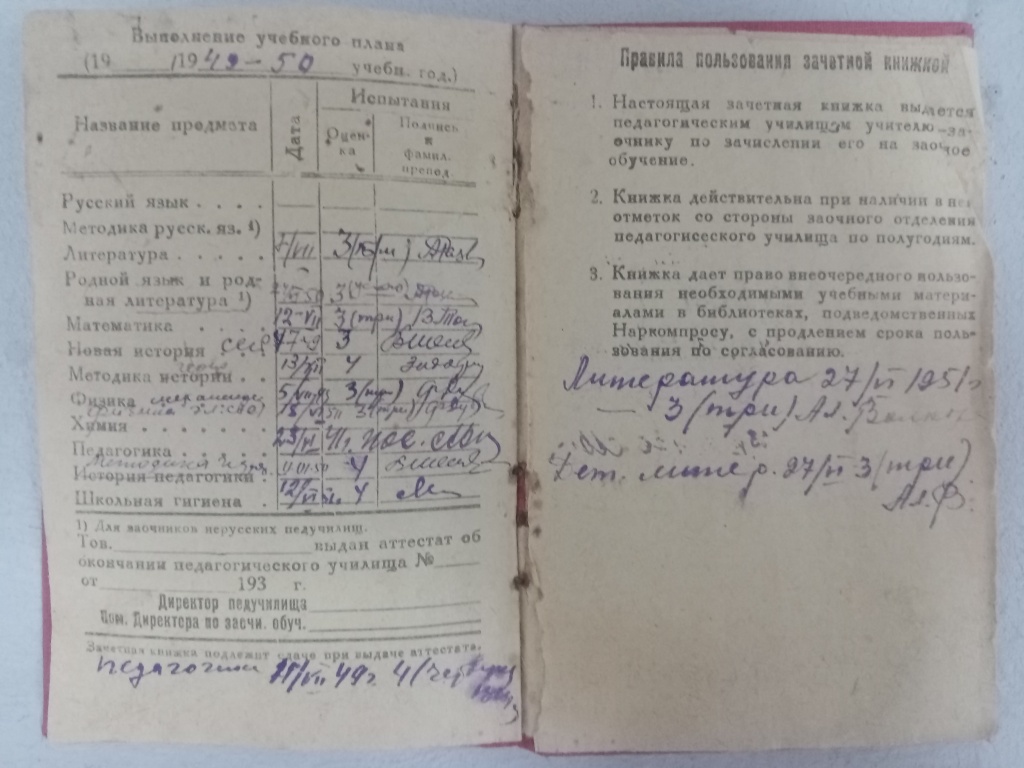 Выполнение учебного плана
(19 /1949-50 учебн. год.)
Название предмата
Дата
Испытания
Оцен-
ка
Подпись
и
фамил.
препод.
Русский язык . . . .
Методика русск. яз. 1)
Литература . . . . . 7/VII 3(три)
Родной язык и род-
ная литература 1) 3
Математика . . . . 12-VII 3(три)
Новая история ссср 3
Методика истории . . 13/VII 4
Физика 5/VIII 3(три)
Химия . . . . . . 3(три)
Педагогика . . . . 23/VI пос.
Методика
История педагогики . 4
Школьная гигиена . 4
1) Для заочников нерусских педучилищ.
Тов. выдан аттестат об
окончании педагогического училища №
от 193 г.
Директор педучилища
Пом. Директора по заочн. обуч.
Зачетная книжка подлежит сдаче при выдаче аттестата.
Педагогика VII 49г. 4/чет
Правила пользования зачетной книжкой
1. Настоящая зачетная книжка выдается
педагогическим училищом учителю-за-
очнику по зачислении его на заочное
обучение.
2. Книжка действительна при наличии в ней
отметок со стороны заочного отделения
педагогисеского училища по полугодиям.
3. Книжка дает право внеочередного пользо-
вания необходимыми учебными матери-
алами в библиотеках, подведомственных
Наркомпросу, с продлением срока поль-
зования по согласованию.
Литература 27/VI 1951г
— 3 (три) Ал.
Дет. литер. 27/VI 3(три)
Ал. В.